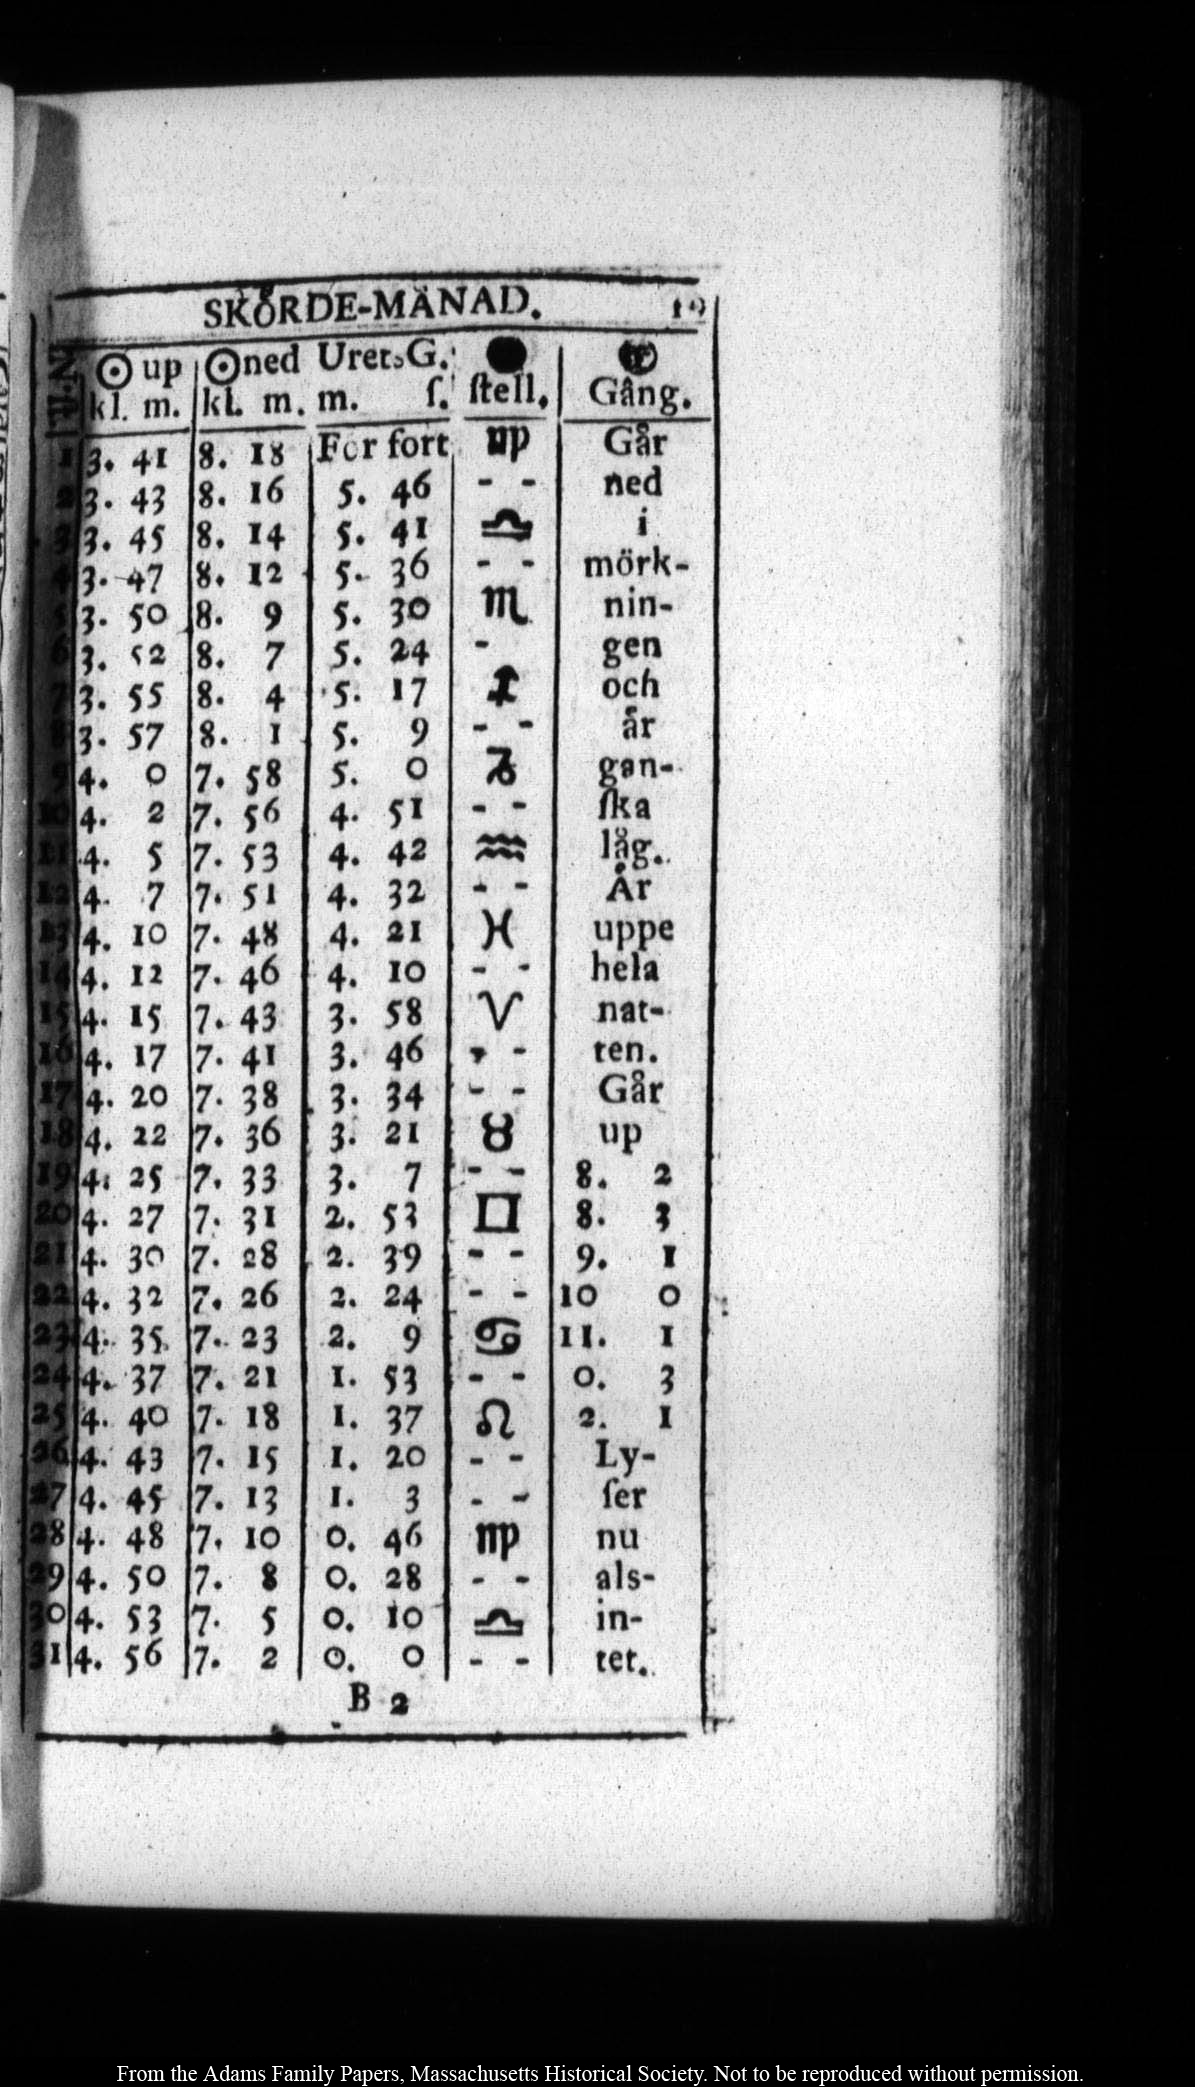 SKÖRDE-MÅNAD. 19
N.St. ☉ up ☉ ned Urets G. ● ☾
kl. m. kl. m. m. ſ. ſtell. Gång.
1 3. 41 8. 18 For fort ♍ Går
2 3. 43 8. 16 5. 46 - - ned
3 3. 45 8. 14 5. 41 ♎ i
4 3. 47 8. 12 5. 36 - - mörk-
5 3. 50 8. 9 5. 30 ♏ nin-
6 3. 52 8. 7 5. 24 - gen
7 3. 55 8. 4 5. 17 ♐ och
8 3. 57 8. 1 5. 9 - - år
9 4. 0 7. 58 5. 0 ♑ gan-
10 4. 2 7. 56 4. 51 - - ſka
11 4. 5 7. 53 4. 42 ♒ låg.
12 4. 7 7. 51 4. 32 - - År
13 4. 10 7. 48 4. 21 ♓ uppe
14 4. 12 7. 46 4. 10 - - hela
15 4. 15 7. 43 3. 58 ♈ nat-
16 4. 17 7. 41 3. 46 - - ten.
17 4. 20 7. 38 3. 34 - - Går
18 4. 22 7. 36 3. 21 ♉ up
19 4. 25 7. 33 3. 7 - - 8. 2
20 4. 27 7. 31 2. 53 ♊ 8. 3
21 4. 30 7. 28 2. 39 - - 9. 1
22 4. 32 7. 26 2. 24 - - 10 0
23 4. 35 7. 23 2. 9 ♋ 11. 1
24 4. 37 7. 21 1. 53 - - 0. 3
25 4. 40 7. 18 1. 37 ♌ 2. 1
26 4. 43 7. 15 1. 20 - - Ly-
27 4. 45 7. 13 1. 3 - - ſer
28 4. 48 7. 10 0. 46 ♍ nu
29 4. 50 7. 8 0. 28 - - als-
30 4. 53 7. 5 0. 10 ♎ in-
31 4. 56 7. 2 0. 0 - - tet.
B 2
From the Adams Family Papers, Massachusetts Historical Society. Not to be reproduced without permission.